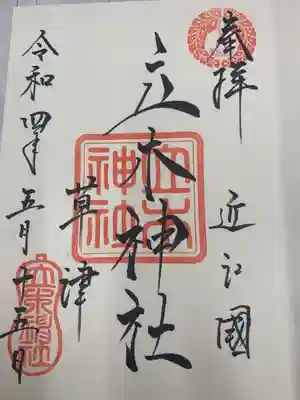 奉拝
近江國
立木神社
草津
令和四年
五月十五日
立木神社